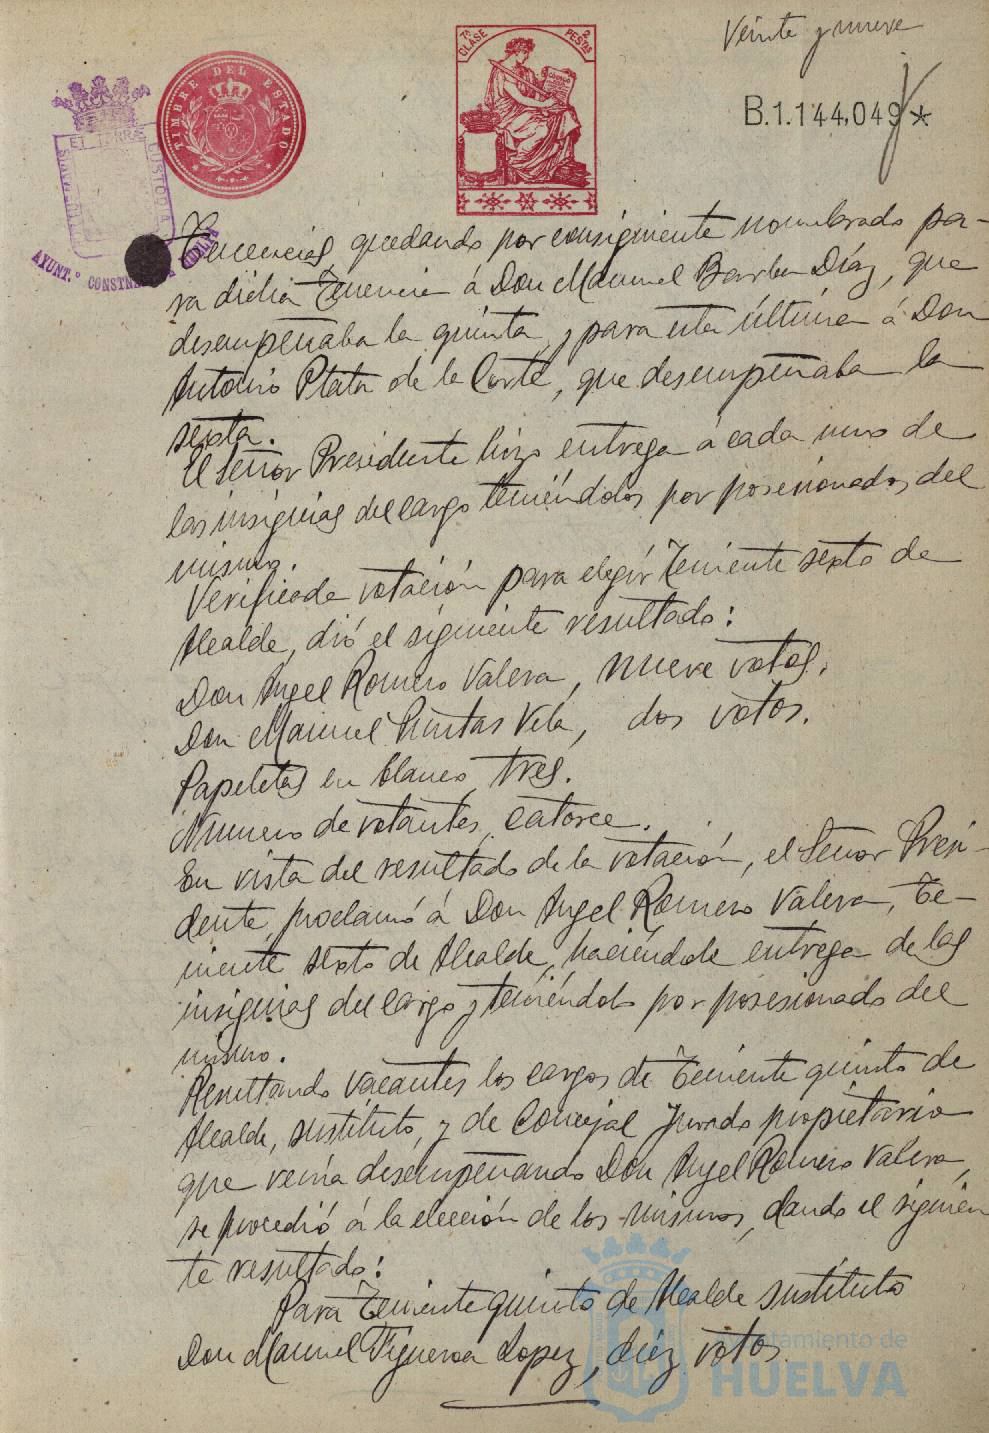 Veinte y nueve
7ª CLASE 2 PESTAS
TIMBRE DEL ESTADO
B.1.144,049 *
AYUNT.º CONSTNAL HUELVA
Tenencias, quedando por consiguiente nombrado pa-
ra dicha Tenencia á Don Manuel Barba Díaz, que
desempeñaba la quinta, y para esta última á Don
Antonio Plata de la Corte, que desempeñaba la
sexta.
El Señor Presidente hizo entrega á cada uno de
las insignias del cargo teniéndolos por posesionados del
mismo.
Verificada votación para elegir Teniente sexto de
Alcalde, dió el siguiente resultado:
Don Angel Romero Valera, nueve votos.
Don Manuel Puntas Vela, dos votos.
Papeletas en blanco, tres.
Número de votantes, catorce.
En vista del resultado de la votación, el Señor Presi-
dente, proclamó á Don Angel Romero Valera, Te-
niente sexto de Alcalde, haciéndole entrega de las
insignias del cargo y teniéndolo por posesionado del
mismo.
Resultando vacantes los cargos de Teniente quinto de
Alcalde, sustituto, y de Concejal Jurado propietario
que venía desempeñando Don Angel Romero Valera,
se procedió á la elección de los mismos, dando el siguien
te resultado:
Para Teniente quinto de Alcalde sustituto
Don Manuel Figueroa Lopez, diéz votos.
Ayuntamiento de
HUELVA